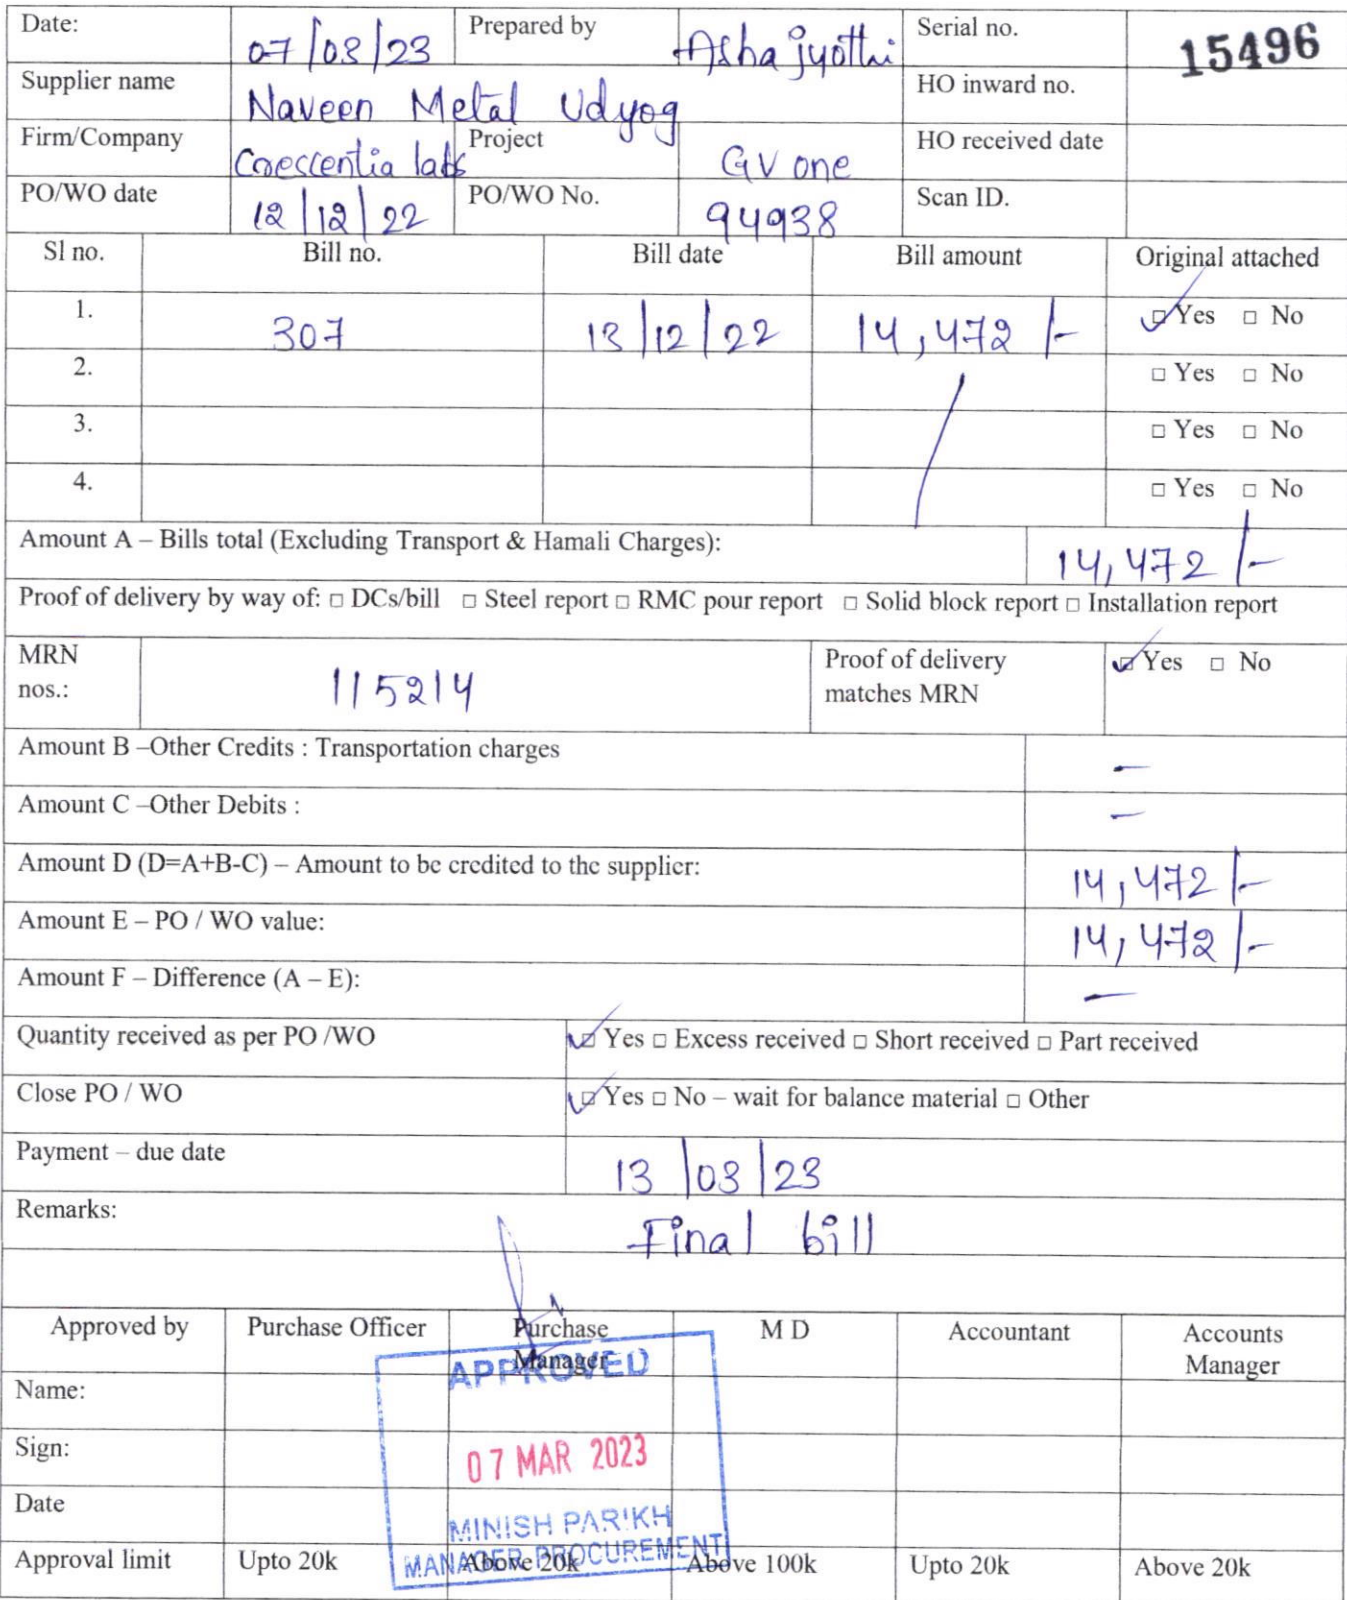 Date: 07/03/23 Prepared by Asha jyothi Serial no. 15496
Supplier name Naveen Metal Udyog HO inward no.
Firm/Company Crescentia labs Project GV one HO received date
PO/WO date 12/12/22 PO/WO No. 94938 Scan ID.
Sl no. Bill no. Bill date Bill amount Original attached
1. 307 13/12/22 14,472/- ☑ Yes □ No
2. □ Yes □ No
3. □ Yes □ No
4. □ Yes □ No
Amount A – Bills total (Excluding Transport & Hamali Charges): 14,472/-
Proof of delivery by way of: □ DCs/bill □ Steel report □ RMC pour report □ Solid block report □ Installation report
MRN nos.: 115214 Proof of delivery matches MRN ☑ Yes □ No
Amount B –Other Credits : Transportation charges –
Amount C –Other Debits : –
Amount D (D=A+B-C) – Amount to be credited to the supplier: 14,472/-
Amount E – PO / WO value: 14,472/-
Amount F – Difference (A – E): –
Quantity received as per PO /WO ☑ Yes □ Excess received □ Short received □ Part received
Close PO / WO ☑ Yes □ No – wait for balance material □ Other
Payment – due date 13/03/23
Remarks: Final bill
Approved by Purchase Officer Purchase Manager M D Accountant Accounts Manager
APPROVED
Name:
Sign:
07 MAR 2023
Date
MINISH PARIKH
MANAGER PROCUREMENT
Approval limit Upto 20k Above 20k Above 100k Upto 20k Above 20k